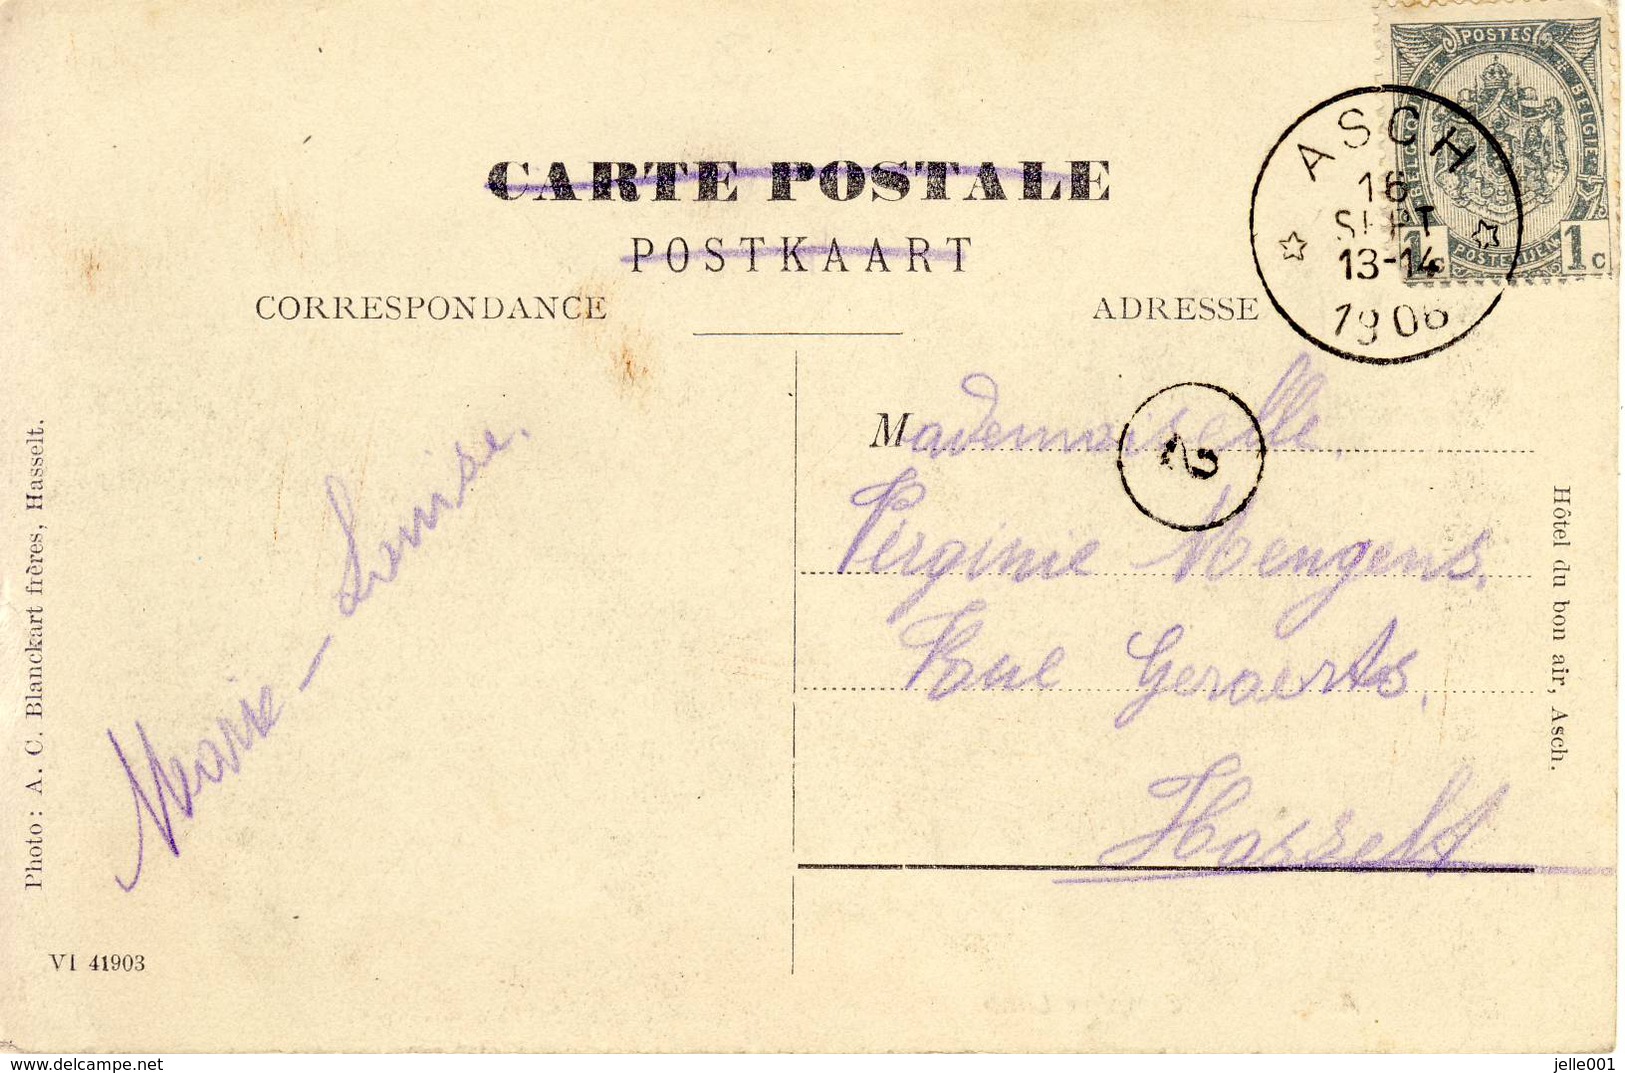 POSTES
BELGIQUE
BELGIE
POSTERIJEN
1c
1c
ASCH
16
SEPT
13-14
1906
CARTE POSTALE
POSTKAART
CORRESPONDANCE
ADRESSE
2
Mademoiselle,
Virginie Mengens,
Rue Geraerts,
Hasselt
Marie-Louise.
Photo: A. C. Blanckart frères, Hasselt.
Hôtel du bon air, Asch.
VI 41903
www.delcampe.net
jelle001